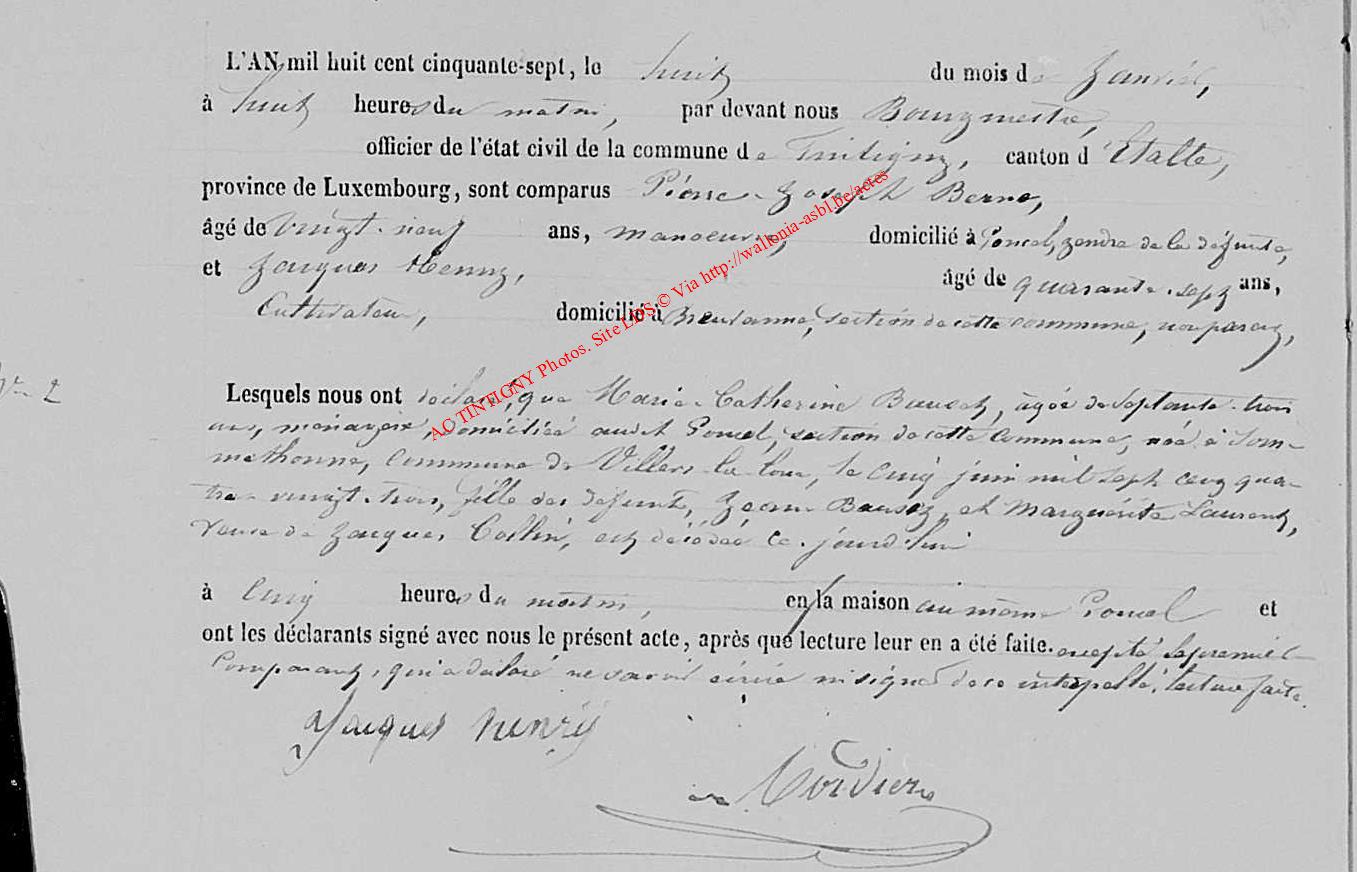 L'AN mil huit cent cinquante-sept, le huit du mois de Janvier,
à huit heures du matin, par devant nous Bourgmestre,
officier de l'état civil de la commune de Tintigny, canton d'Etalle,
province de Luxembourg, sont comparus Pierre-Joseph Berne,
âgé de vingt-neuf ans, manoeuvre, domicilié à Poncel, gendre de la défunte,
et Jacques Henry, âgé de quarante-sept ans,
Cultivateur, domicilié à Breuvanne, section de cette commune, non parent,
N° 2
Lesquels nous ont déclaré, que Marie-Catherine Bausch, âgée de septante-trois
ans, ménagère, domiciliée audit Poncel, section de cette commune, née à Som-
methonne, commune de Villers-la-loue, le cinq juin mil sept cent qua-
tre-vingt-trois, fille des défunts, Jean Bausch, et Marguerite Laurent,
veuve de Jacques Collin, est décédée ce jourd'hui
à cinq heures du matin, en la maison au même Poncel et
ont les déclarants signé avec nous le présent acte, après que lecture leur en a été faite. excepté le premier
Comparant, qui a déclaré ne savoir écrire ni signer de ce interpellé, lecture faite.
Jacques henry
AC TINTIGNY Photos. Site LDS.© Via http://wallonia-asbl.be/actes